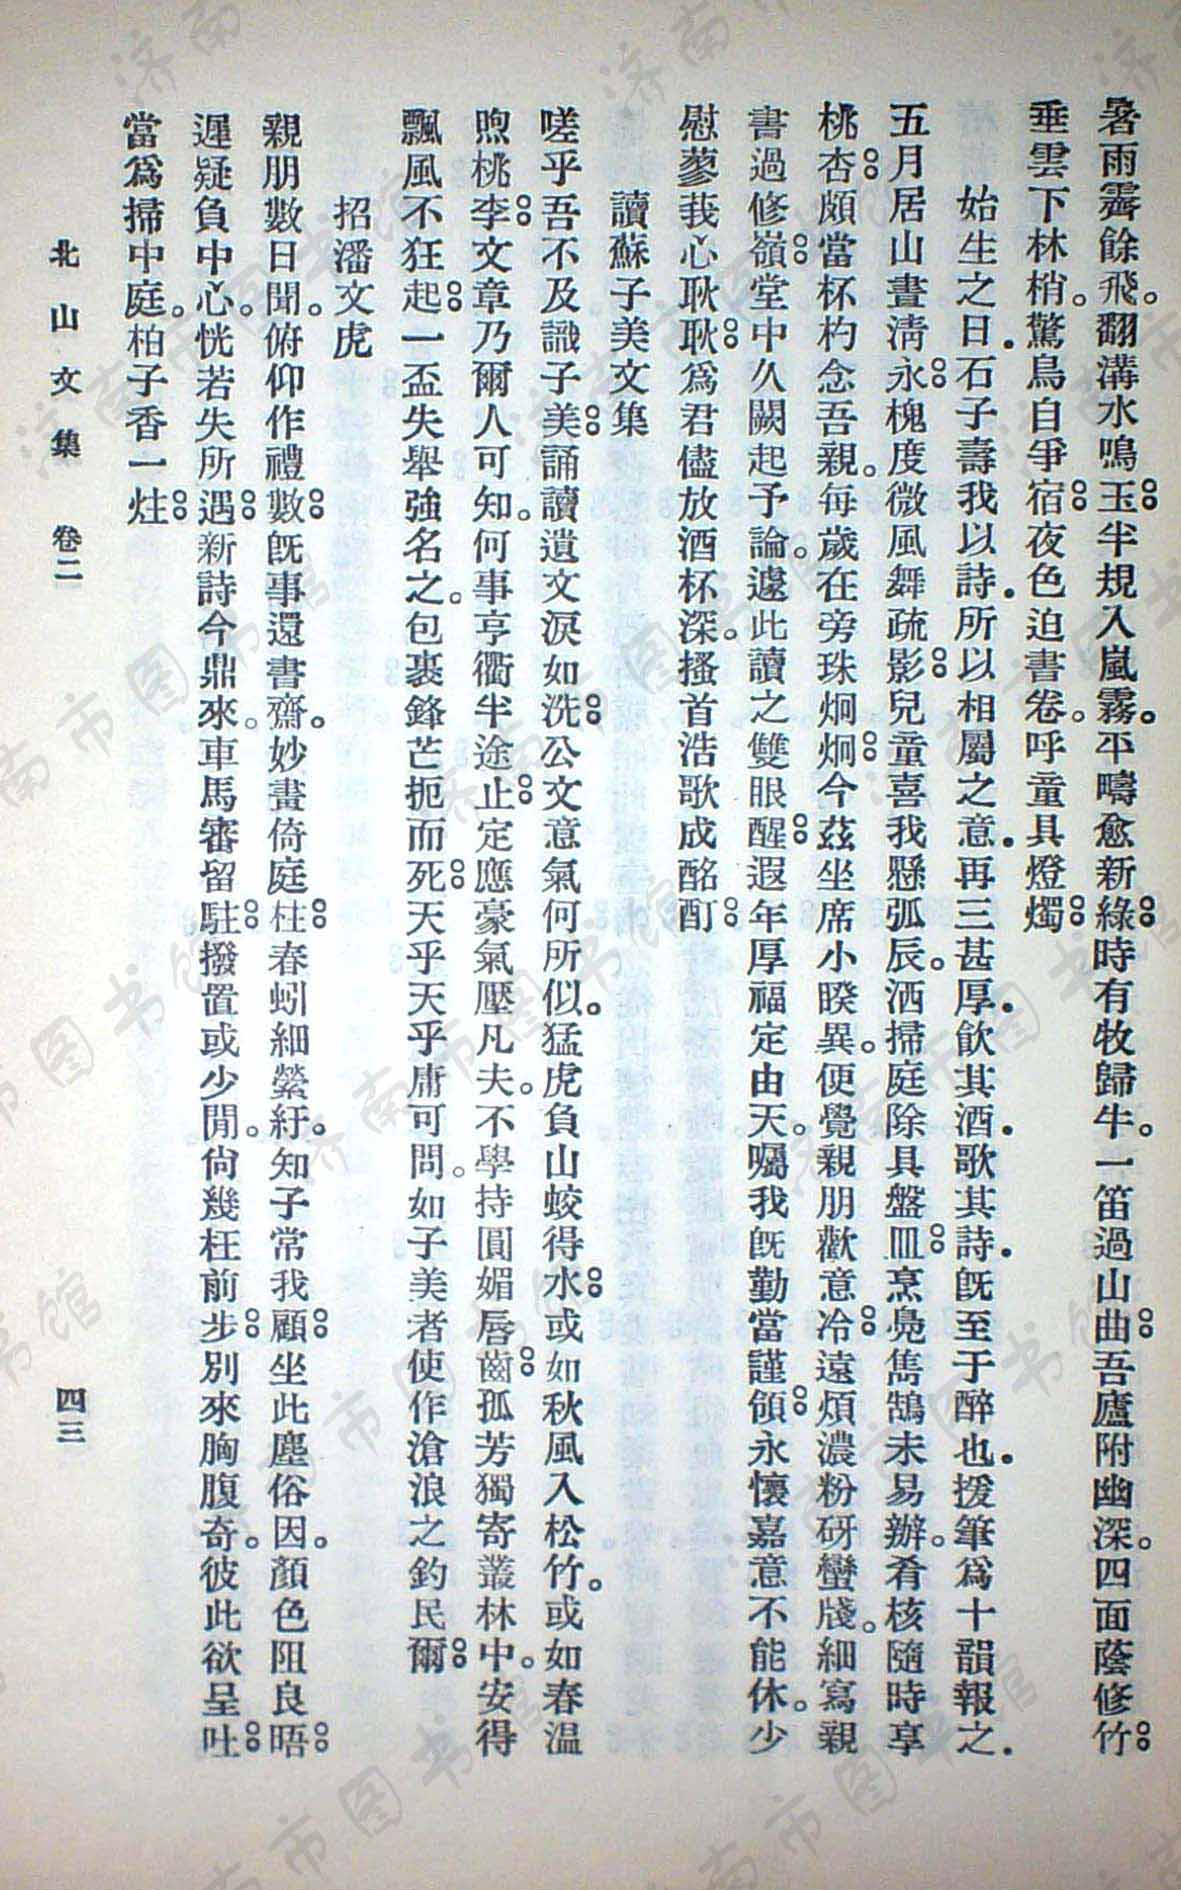 暑雨霽餘飛。翻溝水鳴玉。半規入嵐霧。平疇愈新綠。時有牧歸牛。一笛過山曲。吾廬附幽深。四面蔭修竹。
垂雲下林梢。驚鳥自爭宿。夜色迫書卷。呼童具燈燭。
始生之日.石子壽我以詩.所以相屬之意.再三甚厚.飲其酒.歌其詩.既至于醉也.援筆爲十韻報之.
五月居山晝淸永。槐度微風舞疏影。兒童喜我懸弧辰。洒掃庭除具盤皿。烹鳧雋鵠未易辦。肴核隨時享
桃杏。頗當杯杓念吾親。每歲在旁珠炯炯。今茲坐席小暌異。便覺親朋歡意冷。遠煩濃粉硏蠻牋。細寫親
書過修嶺。堂中久闕起予論。遽此讀之雙眼醒。遐年厚福定由天。囑我既勤當謹領。永懷嘉意不能休。少
慰蓼莪心耿耿。爲君儘放酒杯深。搔首浩歌成酩酊。
讀蘇子美文集
嗟乎吾不及識子美。誦讀遺文淚如洗。公文意氣何所似。猛虎負山蛟得水。或如秋風入松竹。或如春溫
煦桃李。文章乃爾人可知。何事亨衢半途止。定應豪氣壓凡夫。不學持圓媚唇齒。孤芳獨寄叢林中。安得
飄風不狂起。一盃失舉強名之。包裹鋒芒扼而死。天乎天乎庸可問。如子美者使作滄浪之釣民爾。
招潘文虎
親朋數日聞。俯仰作禮數。旣事還書齋。妙畫倚庭柱。春蚓細縈紆。知子常我顧。坐此塵俗因。顏色阻良晤。
遲疑負中心。恍若失所遇。新詩今鼎來。車馬審留駐。撥置或少閒。尙幾枉前步。別來胸腹奇。彼此欲呈吐。
當爲掃中庭。柏子香一炷。
北山文集 卷二 四三